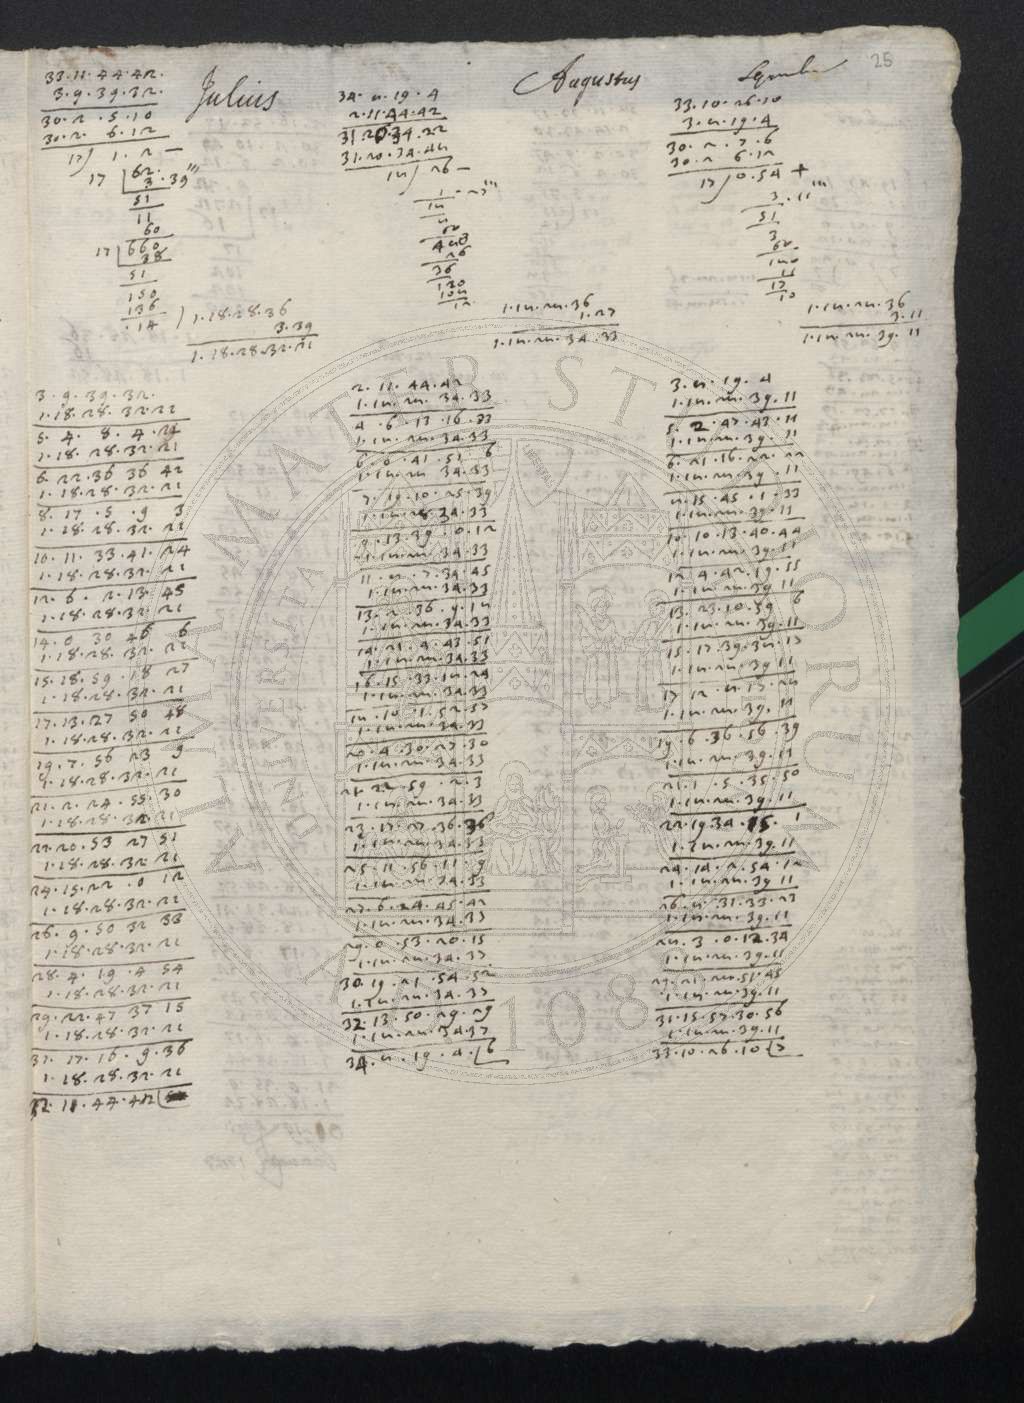 25
33.11.44.42.
3.9.39.32.
30.2.5.10
30.2.6.12
17) 1.2 —
17 | 62
3.39'''
51
11
60
17 | 660
38
51
150
136
14
Julius
1.18.28.36
3.39
1.18.28.32.21
3.9.39.32.
1.18.28.32.21
5.4.8.4.21
1.18.28.32.21
6.22.36.36.42
1.18.28.32.21
8.17.5.9.3
1.18.28.32.21
10.11.33.41.24
1.18.28.32.21
12.6.2.13.45
1.18.28.32.21
14.0.30.46.6
1.18.28.32.21
15.18.59.18.27
1.18.28.32.21
17.13.27.50.48
1.18.28.32.21
19.7.56.23.9
1.18.28.32.21
21.2.24.55.30
1.18.28.32.21
22.20.53.27.51
1.18.28.32.21
24.15.22.0.12
1.18.28.32.21
26.9.50.32.33
1.18.28.32.21
28.4.19.4.54
1.18.28.32.21
29.22.47.37.15
1.18.28.32.21
31.17.16.9.36
1.18.28.32.21
33.11.44.42
Augustus
34.8.19.4
2.11.44.42
31.20.34.22
31.20.34.48
18) 26 —
1.27'''
18
8
60
480
36
120
12
1.18.28.36
1.27
1.18.28.34.33
2.11.44.42
1.18.28.34.33
4.6.13.16.33
1.18.28.34.33
6.0.41.51.6
1.18.28.34.33
7.19.10.25.39
1.18.28.34.33
9.13.39.0.12
1.18.28.34.33
11.8.7.34.45
1.18.28.34.33
13.2.36.9.18
1.18.28.34.33
14.21.4.43.51
1.18.28.34.33
16.15.33.18.24
1.18.28.34.33
18.10.1.52.57
1.18.28.34.33
20.4.30.27.30
1.18.28.34.33
21.22.59.2.3
1.18.28.34.33
23.17.27.36.36
1.18.28.34.33
25.11.56.11.9
1.18.28.34.33
27.6.24.45.42
1.18.28.34.33
29.0.53.20.15
1.18.28.34.37
30.19.21.54.52
1.18.28.34.37
32.13.50.29.29
1.18.28.34.37
34.8.19.4.(6
33.10.26.10
3.8.19.4
30.2.7.6
30.2.6.12
17) 0.54 +
3.11'''
51
3
60
180
17
10
1.18.28.36
3.11
1.18.28.39.11
3.8.19.4
1.18.28.39.11
5.2.47.43.11
1.18.28.39.11
6.21.16.22.22
1.18.28.39.11
8.15.45.1.33
1.18.28.39.11
10.10.13.40.44
1.18.28.39.11
12.4.42.19.55
1.18.28.39.11
13.23.10.59.6
1.18.28.39.11
15.17.39.38.17
1.18.28.39.11
17.12.8.17.28
1.18.28.39.11
19.6.36.56.39
1.18.28.39.11
21.1.5.35.50
1.18.28.39.11
22.19.34.15.1
1.18.28.39.11
24.14.2.54.12
1.18.28.39.11
26.8.31.33.23
1.18.28.39.11
28.3.0.12.34
1.18.28.39.11
29.21.28.51.45
1.18.28.39.11
31.15.57.30.56
1.18.28.39.11
33.10.26.10(7
ALMA MATER STUDIORUM
A.D. 1088